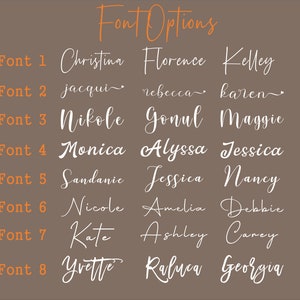 Font Options
Font 1 Christina Florence Kelley
Font 2 jacqui rebecca karen
Font 3 Nikole Gonul Maggie
Font 4 Monica Alyssa Jessica
Font 5 Sandanie Jessica Nancy
Font 6 Nicole Amelia Debbie
Font 7 Kate Ashley Carey
Font 8 Yvette Raluca Georgia